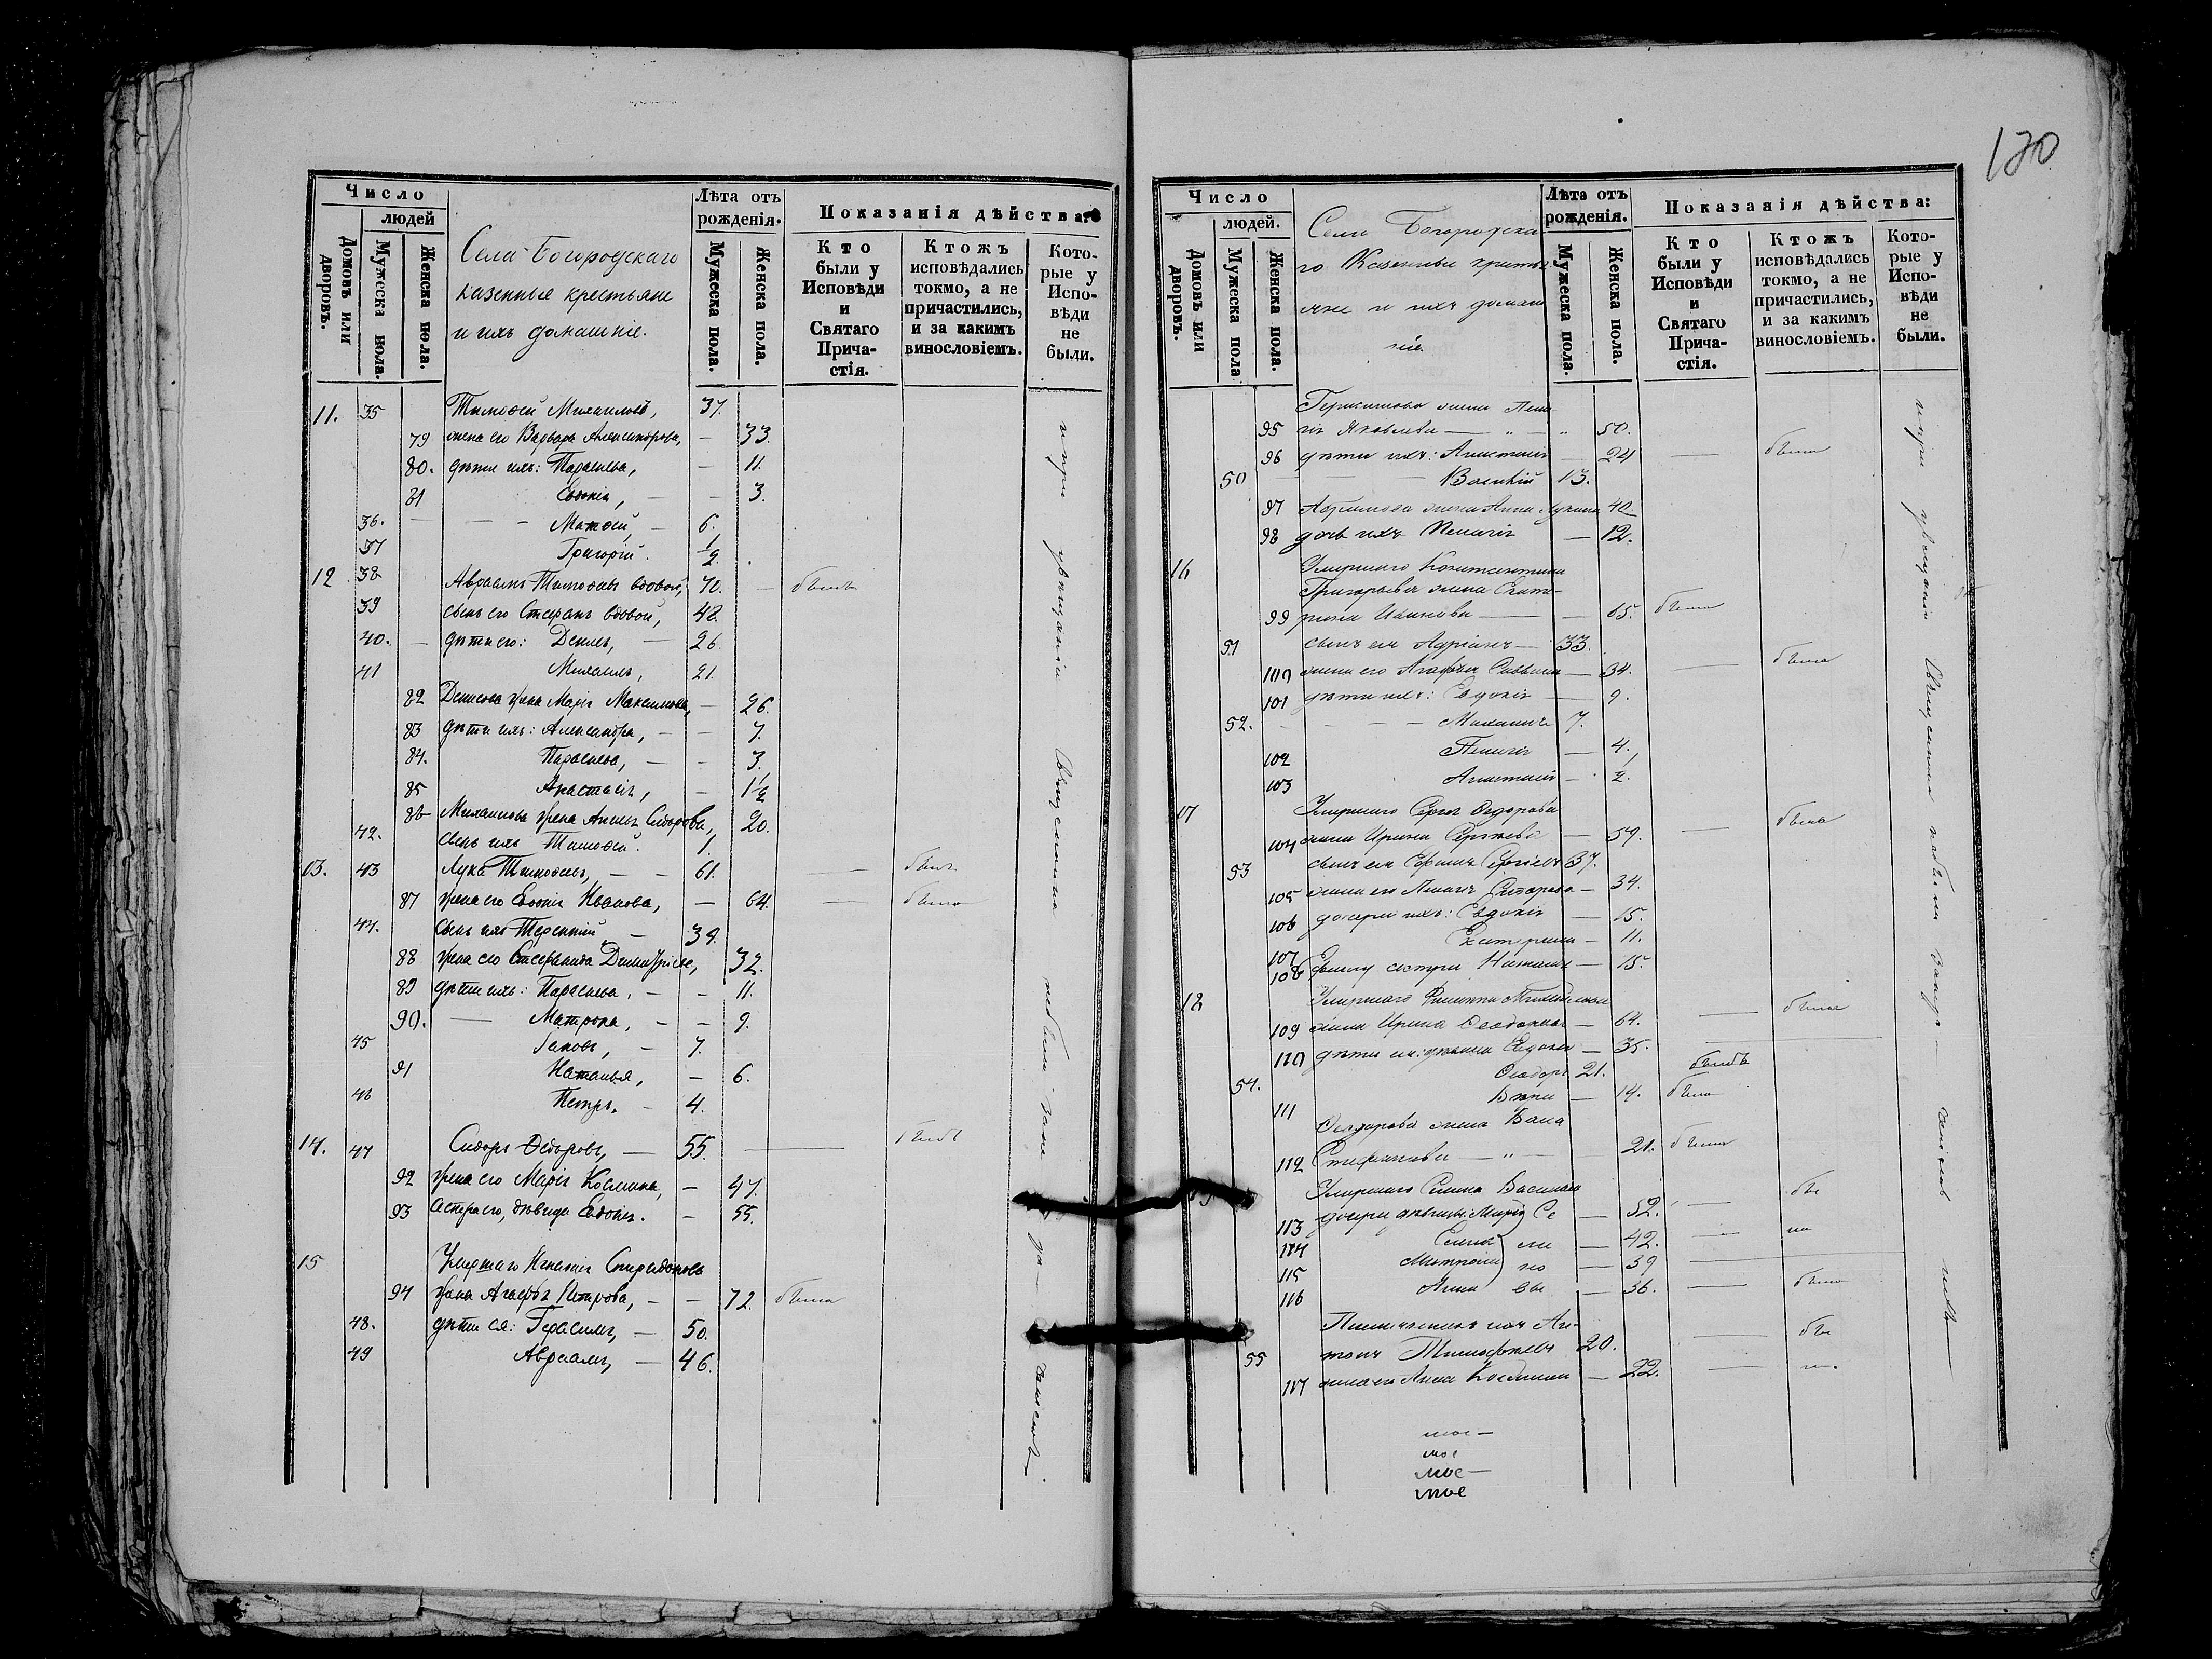 Число
людей
Домовъ или дворовъ.
Мужеска пола.
Женска пола.
Села Богородскаго
казенные крестьяне
и ихъ домашніе.
Лѣта отъ
рожденія.
Мужеска пола.
Женска пола.
Показанія дѣйства:
Кто
были у
Исповѣди
и
Святаго
Прича-
стія.
Ктожъ
исповѣдались
токмо, а не
причастились,
и за какимъ
винословіемъ.
Кото-
рые у
Испо-
вѣди
не
были.
11. 35 Тимоѳей Михаиловъ, 37.
79 жена его Варвара Александрова, — 33.
80. дѣти ихъ: Параскева, — 11.
81 Евдокія, — — 3.
36. — — — Матѳей, — 6.
37 Григорій. 1/2.
12 38 Авраамъ Тимоѳеевъ вдовой, 70. — былъ
39 сынъ его Стефанъ вдовой, 48.
40. — дѣти его: Денисъ, — 26.
41 Михаилъ, 21.
82 Денисова жена Марія Максимова, — 26.
83 дѣти ихъ: Александра, — — 7.
84. Параскева, — — 3.
85 Анастасія, — 1 1/2
86 Михаилова жена Анна Сидорова, 20.
42. сынъ ихъ Тимоѳей. 1.
13. 43 Лука Тимоѳеевъ, — — 61. — былъ
87 жена его Евдокія Иванова, — 64. — была
44. сынъ ихъ Терентій — 39.
88 жена его Стефанида Димитріева, 32.
89 дѣти ихъ: Параскева, — — 11.
90. — Матрона, — — 9.
45 Іаковъ, — 7.
91 Наталья, — 6.
46 Петръ. — 4.
14. 47 Сидоръ Ѳедоровъ, — 55. — былъ
92 жена его Марія Космина, — 47.
93 Сестра его, дѣвица Евдокія. — 55.
15 Умершаго Игнатія Спиридонова
94 жена Агафья Петрова, — — 72. была
48. дѣти ея: Герасимъ, — 50.
49 Авраамъ, — 46.
и при увѣщаніи Священника небыли
130
Число
людей.
Домовъ или дворовъ.
Мужеска пола
Женска пола.
Села Богородска-
го Казенные кресть-
яне и ихъ домаш-
ніе.
Лѣта отъ
рожденія.
Мужеска пола.
Женска пола.
Показанія дѣйства:
Кто
были у
Исповѣди
и
Святаго
Прича-
стія.
Ктожъ
исповѣдались
токмо, а не
причастились,
и за какимъ
винословіемъ.
Кото-
рые у
Испо-
вѣди
не
были.
Герасимова жена Пела-
95 гія Яковлева — „ — „ 50.
96 дѣти ихъ: Анастасія — 24 — была
50 — — — Василій 13.
97 Абрамова жена Анна Лукина 40
98 дочь ихъ Пелагія — 12.
16 Умершаго Константина
Григорьева жена Екате-
99 рина Иванова — — 65. была
51 сынъ ея Адріанъ — 33.
100 жена его Агафья Саввина — 34. — была
101 дѣти ихъ: Евдокія — 9.
52. — — — — Михаилъ 7.
102 Пелагія — 4.
103 Анастасія — 1/2.
17 Умершаго Сергія Ѳедорова
104 жена Ирина Сергѣева — 59. — была
53 сынъ ея Ефимъ Сергіевъ 37.
105 жена его Пелагія Сидорова — 34.
106 дочери ихъ: Евдокія — 15.
107 Екатерина — 11.
108 Ефиму сестра Наталія — 15.
18 Умершаго Филиппа
109 жена Ирина Ѳеодорова — 64. — была
110 дѣти ея: дѣвица Евдокія — 35. —
54. Ѳеодоръ 21. былъ
111 Вѣра — 19. была
Ѳеодорова жена
112 Стефанова — „ — 21. была
Умершаго Симна Васильева
113 дочери дѣвицы: Марія Се — 52. — бы
114 Елена ме — 42. — ла
115 Матрона но — 39 —
116 Анна вы — 36. — была
Племянникъ ихъ Ан-
55 тонъ Тимофѣевъ 20. — бы
117 жена его Анна Космина — 22. — л.
мое —
мое
мое —
мое
и при увѣщаніи Священника небыли